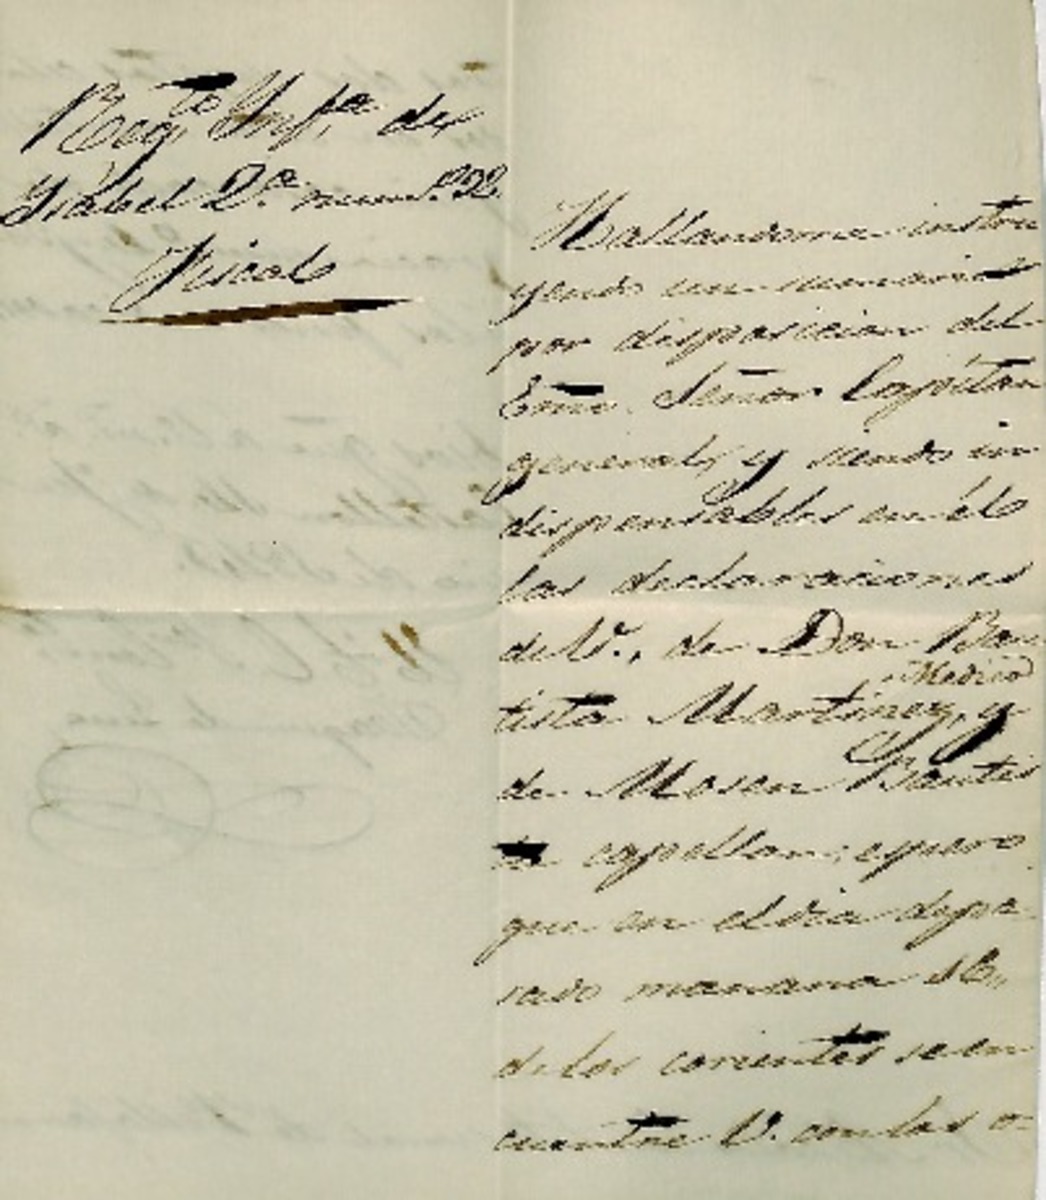 Reg.to Ynf.a de
Ysabel 2.a num.o 32.
Fiscal
Hallandome instru
yendo un sumario
por disposicion del
Exmo. Señor Capitan
general, y siendo in
dispensables en él
las declaraciones
de V., de Don Bau
Medico
tista Martinez, y
de Mosen Bautis
ta capellan; espero
que en el dia depa
sado manana 16,,
de los corientes se en
cuentre V. con los o